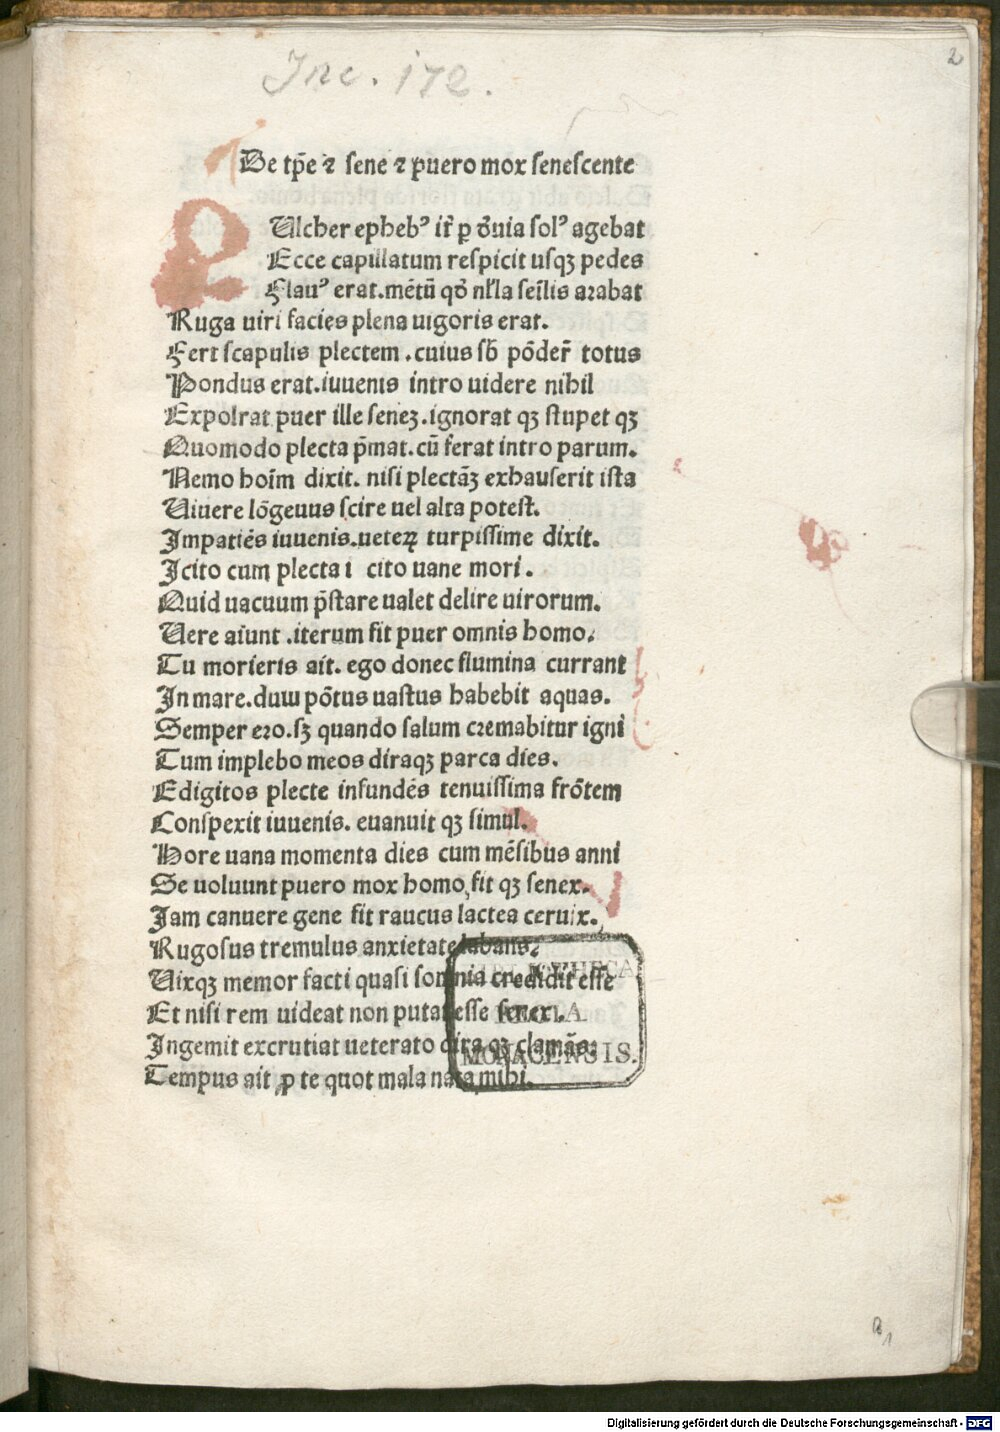 Inc. 172.
2
De tp̄e ⁊ sene ⁊ puero mox senescente
PUlcher epheb⁹ it̄ ꝑ ōuia sol⁹ agebat
Ecce capillatum respicit usqꝫ pedes
Flau⁹ erat.mētū qō nl̄la sei̅lis arabat
Ruga uiri facies plena uigoris erat.
Fert scapulis plectem .cuius sb̄ pōder̄ totus
Pondus erat.iuuenis intro uidere nihil
Expolrat puer ille seneꝫ.ignorat qꝫ stupet qꝫ
Quomodo plecta p̄mat.cū ferat intro parum.
Nemo hoi̅m dixit. nisi plectāꝫ exhauserit ista
Uiuere lōgeuus scire uel alta potest.
Impatiēs iuuenis.ueteꝝ turpissime dixit.
Icito cum plecta i cito uane mori.
Quid uacuum p̄stare ualet delire uirorum.
Uere aiunt .iterum fit puer omnis homo.
Tu morieris ait. ego donec flumina currant
In mare.duꝫ pōtus uastus habebit aquas.
Semper ero.sꝫ quando salum cremabitur igni
Tum implebo meos diraqꝫ parca dies.
Edigitos plecte infundēs tenuissima frōtem
Conspexit iuuenis. euanuit qꝫ simul.
Hore uana momenta dies cum mēsibus anni
Se uoluunt puero mox homo fit qꝫ senex.
Jam canuere gene fit raucus lactea ceruix.
Rugosus tremulus anxietate labans.
Uixqꝫ memor facti quasi somnia credidit esse
Et nisi rem uideat non putat esse senex.
Ingemit excrutiat ueterato dira qꝫ clamās:
Tempus ait ꝓ te quot mala nata mihi.
BIBLIOTHECA
REGIA
MONACENSIS.
a1
Digitalisierung gefördert durch die Deutsche Forschungsgemeinschaft - DFG